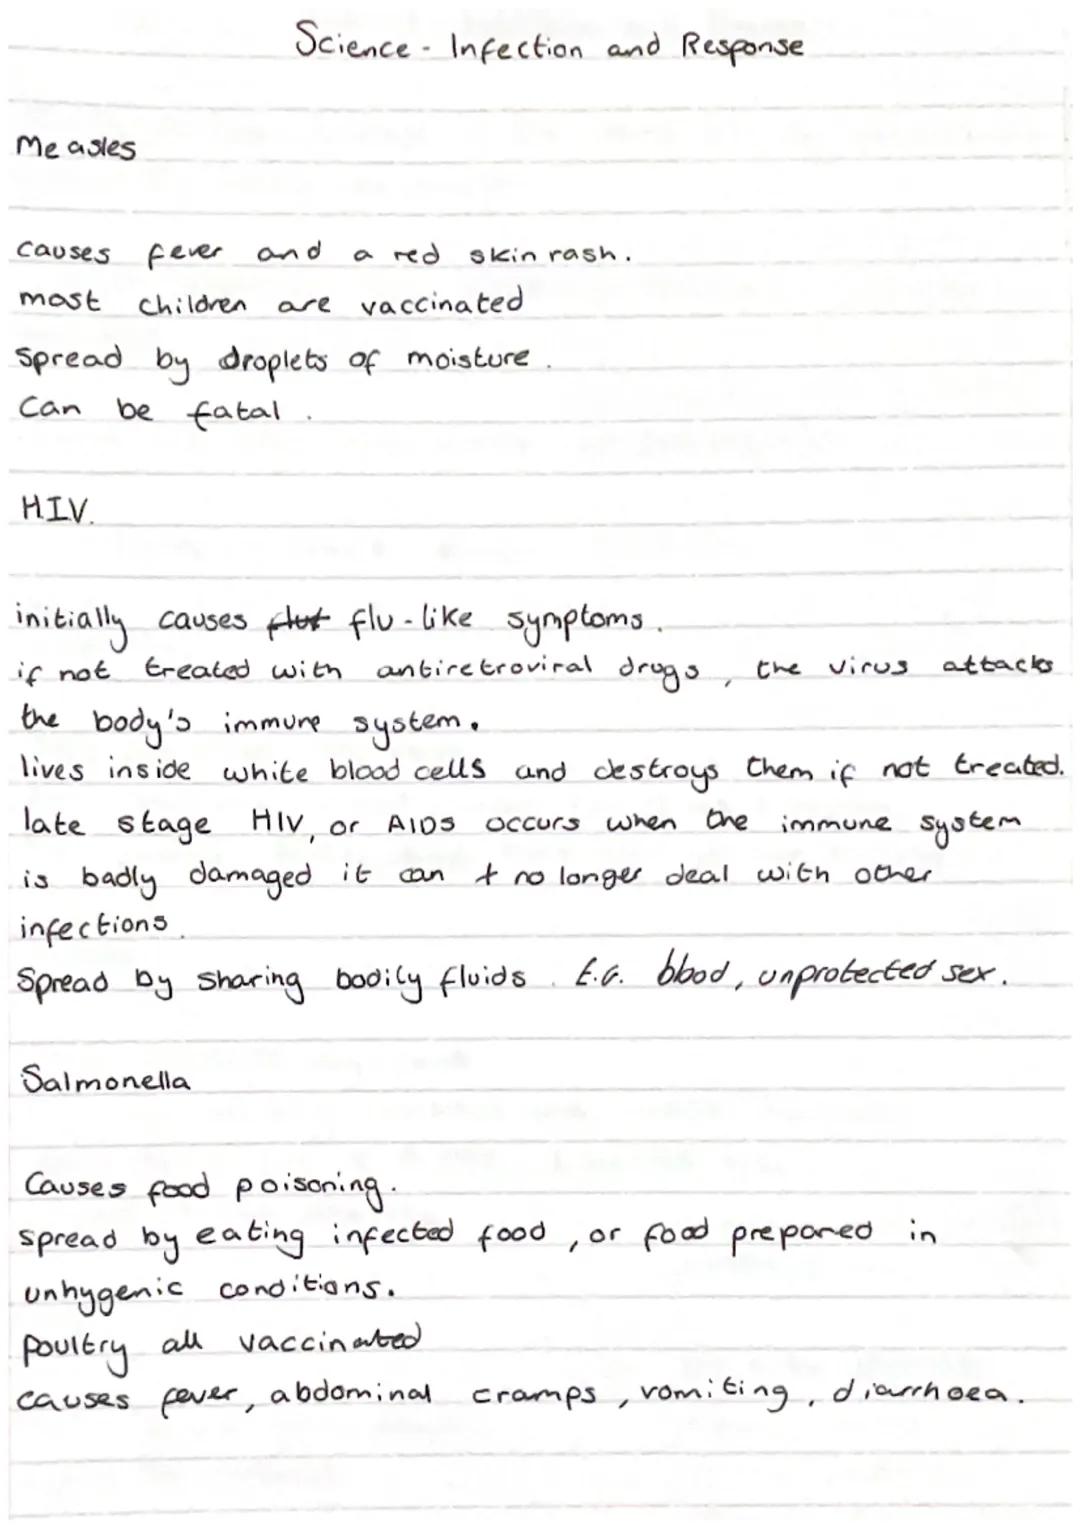 Science - Infection and Response
Measles
causes fever and a red skin rash.
most children are vaccinated
spread by droplets of moisture.
Can be fatal.
HIV.
initially causes flut flu-like symptoms.
if not treated with antiretroviral drugs, the virus attacks
the body's immune system.
lives inside white blood cells and destroys them if not treated.
late stage HIV, or AIDS occurs when the immune system
is badly damaged it can t no longer deal with other
infections.
Spread by sharing bodily fluids. E.G. blood, unprotected sex.
Salmonella
Causes food poisoning.
spread by eating infected food, or food prepared in
unhygenic conditions.
Poultry all vaccinated
causes fever, abdominal cramps, vomiting, diarrhoea.